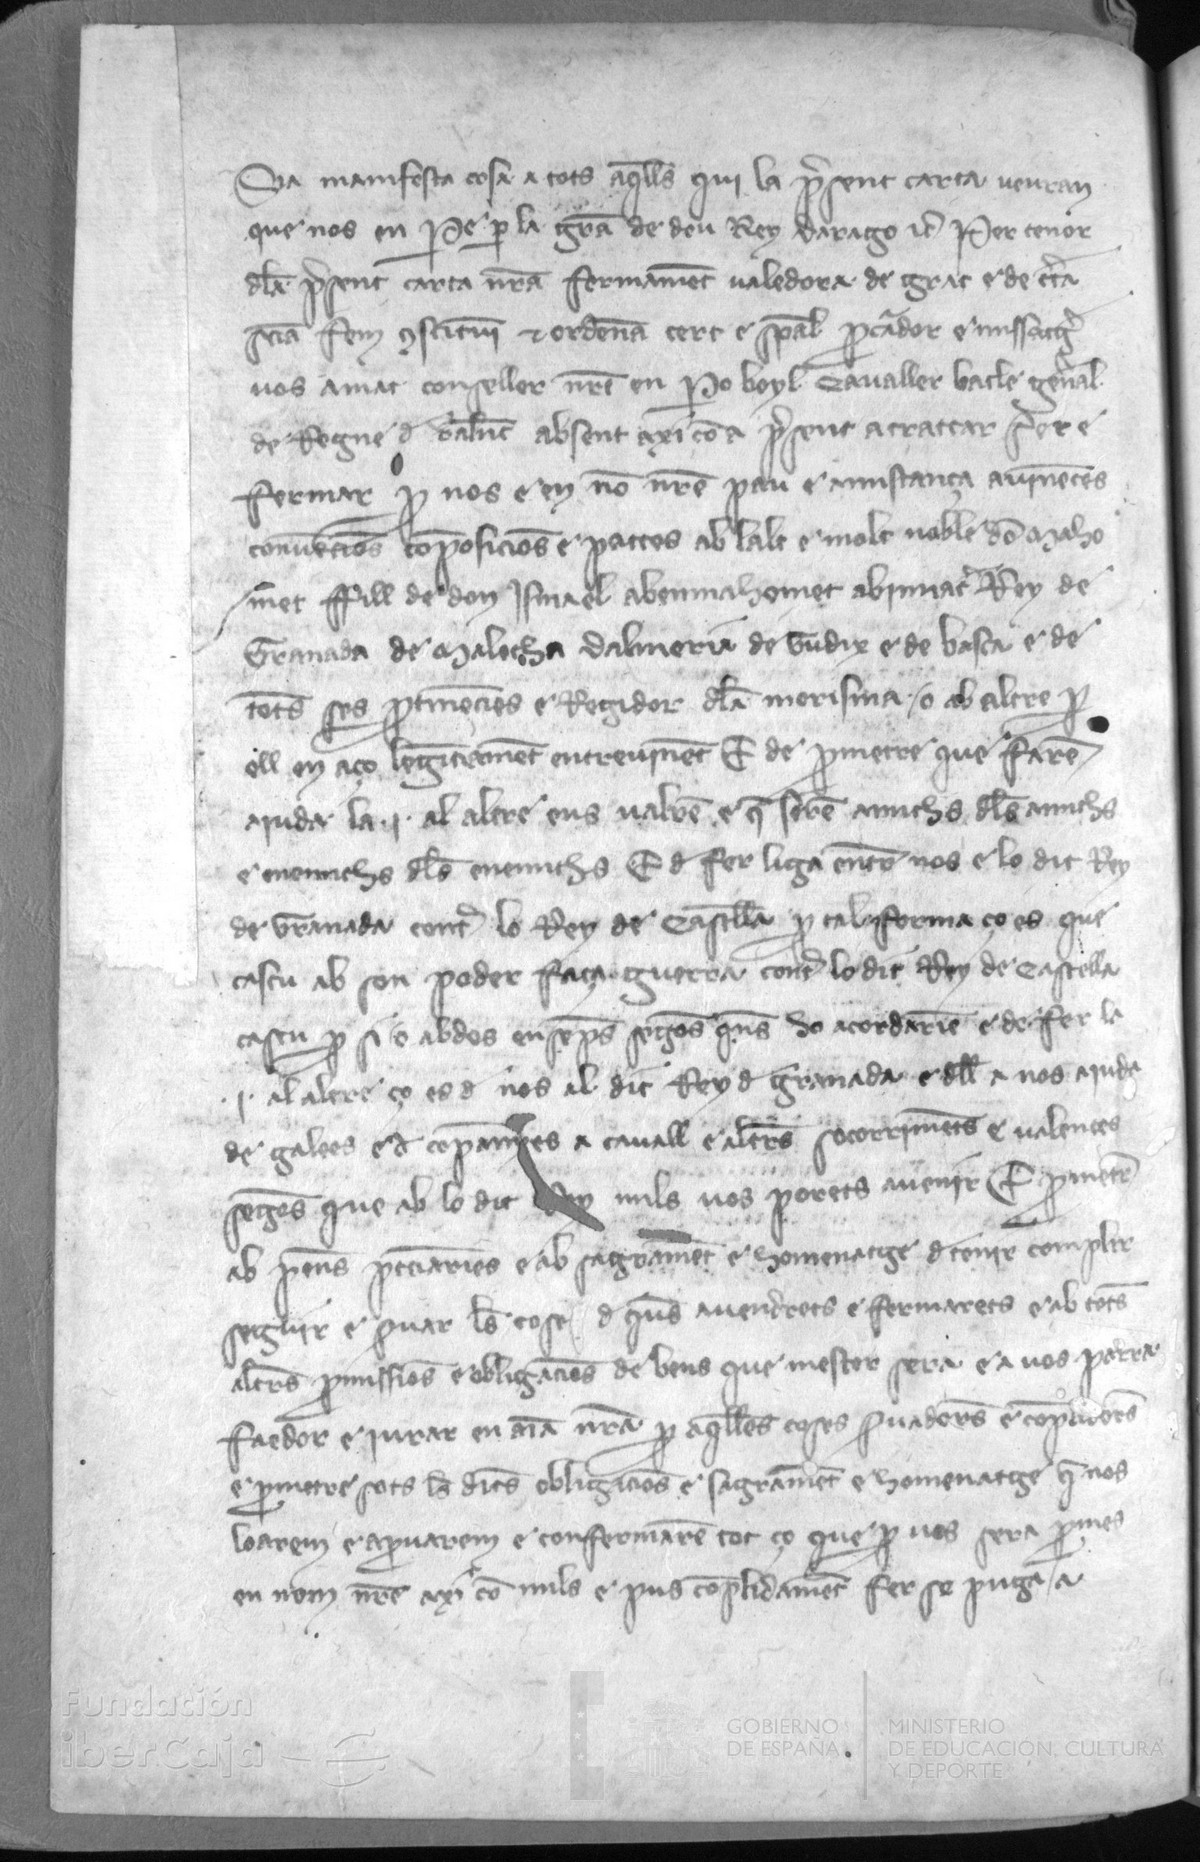 Sia manifesta cosa a tots aqlls qui la psent carta veuran
que nos en Pe p la gra de deu Rey darago ec Per tenor
dla psent carta nra fermament valedora de grat e de cta
scia fem constituim e ordenam cert e spal pcador e missatg
vos amat conseller nre en Po boyl Cavaller batle general
de Regne d Valenc absent axi co a psent a tractar fer e
fermar p nos e en no nre pau e amistança avinences
convencios composicios e pactes ab lalt e molt noble do Maho
met ffill de don Ismael abenmahomet abinnaçr Rey de
Granada de Malecha dalmeria de Gudix e de basta e de
tots ses ptinecies e Regidor dla morisma o ab altre p
ell en aço legitiament entrevinent E de pmetre que farem
ajuda la .I. al altre ens valrem e q serem amichs dls amichs
e enemichs dls enemichs E d fer liga entre nos e lo dit Rey
de Granada contr lo Rey de Castella p tal forma ço es que
cascu ab son poder faça guerra contr lo dit Rey de Castella
cascu p si o abdos ensemps segons qns ho acordarem e de fer la
.I. al altre ço es d nos al dit Rey d Granada e dll a nos ajuda
de galees e d companyes a cavall e altres socorriments e valences
segons que ab lo dit Rey mils vos porets avenir E pmetre
ab penes pecuniaries e ab sagrament e homenatge d tenir complir
seguir e servar les coses d qns avendrets e fermarets e ab tots
altres pmissios e obligacios de bens que mester sera e a vos parra
faedor e jurar en aia nra p aqlles coses servadores e complidores
e pmetre sots ls dits obligacios e sagrament e homenatge q nos
loarem e apvarem e confermarem tot ço que p vos sera pmes
en nom nre axi co mils e pus complidament fer se puga a
Fundación
iberCaja
GOBIERNO
DE ESPAÑA
MINISTERIO
DE EDUCACIÓN, CULTURA
Y DEPORTE